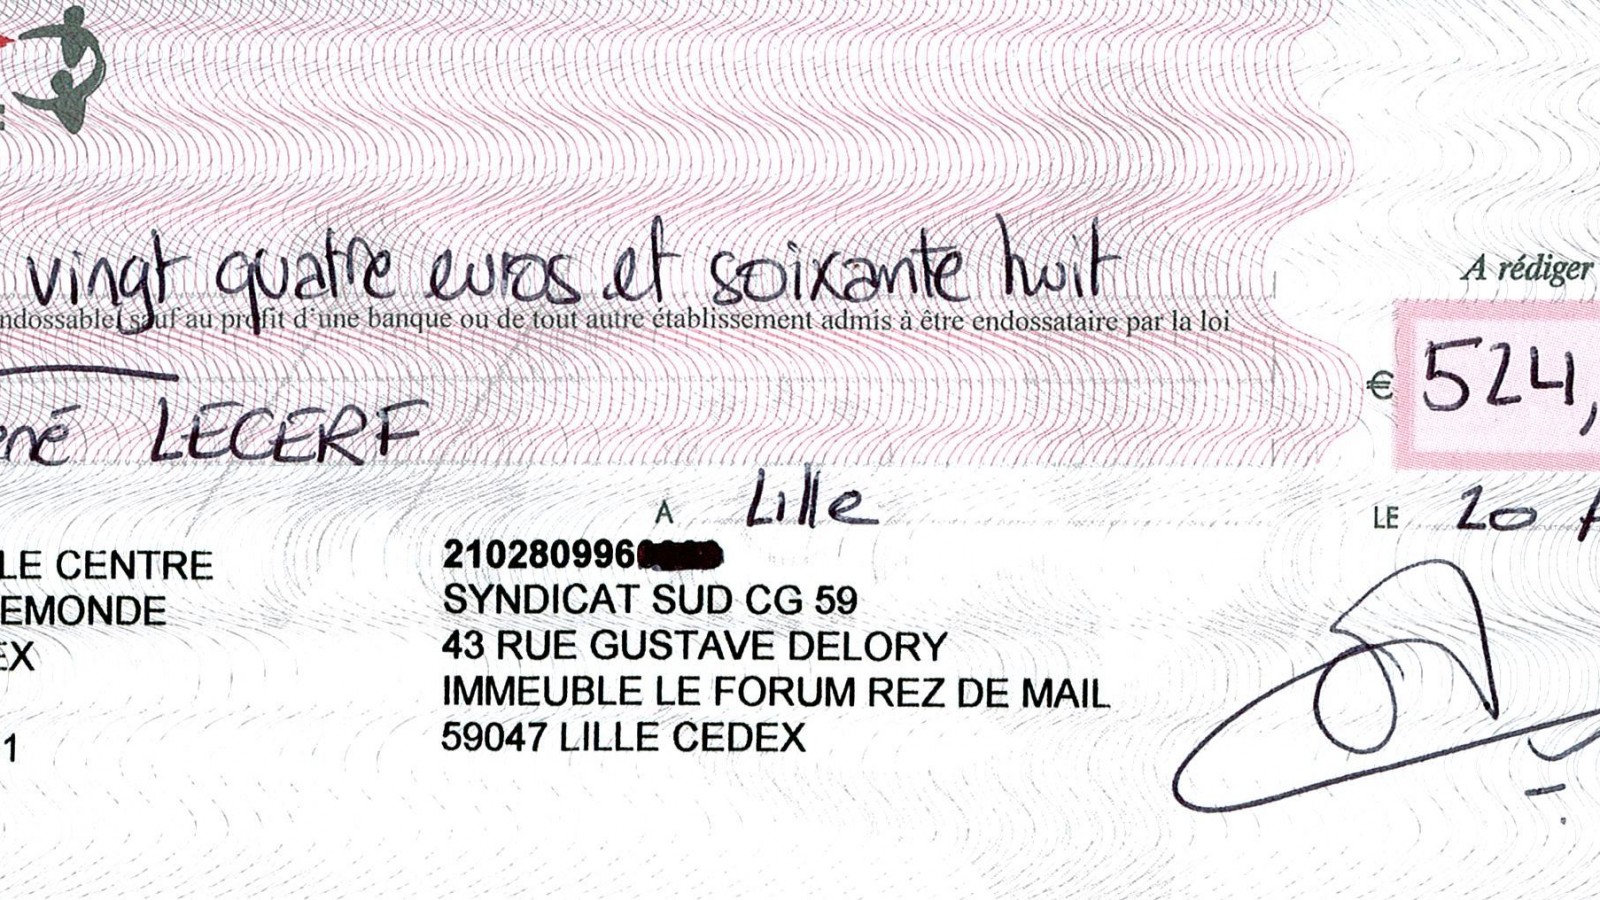 vingt quatre euros et soixante huit
A rédiger
ndossable sauf au profit d'une banque ou de tout autre établissement admis à être endossataire par la loi
€ 524,
ené LECERF
A Lille
LE 20 A
LE CENTRE
EMONDE
EX
1
210280996
SYNDICAT SUD CG 59
43 RUE GUSTAVE DELORY
IMMEUBLE LE FORUM REZ DE MAIL
59047 LILLE CEDEX